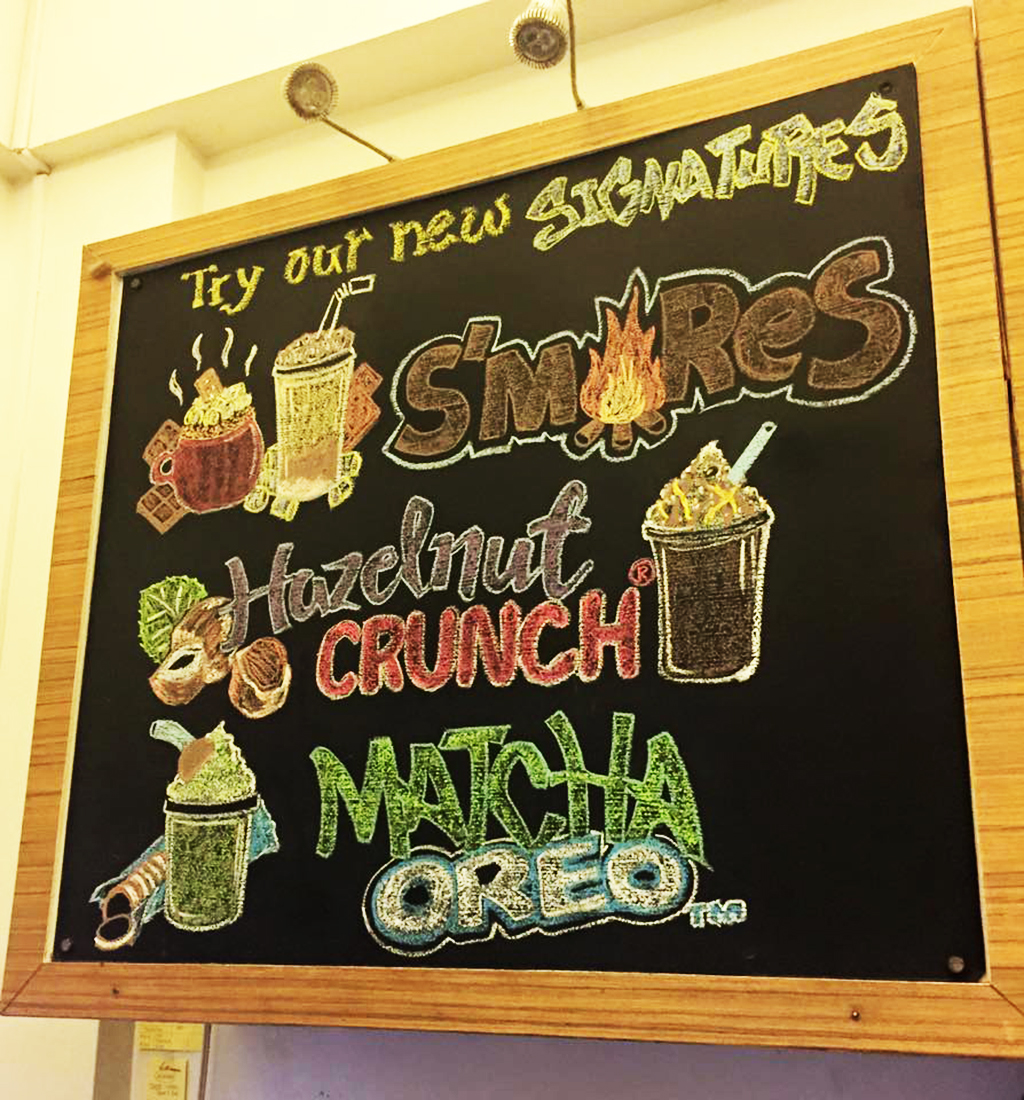 Try our new SIGNATURES
S'mORes
Hazelnut
CRUNCH®
MATCHA
OREO™